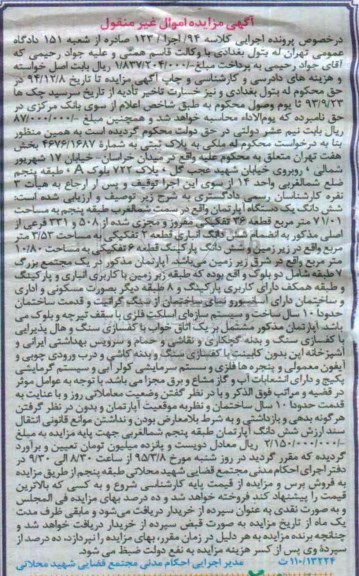 آگهی مزایده اموال غیر منقول
درخصوص پرونده اجرایی کلاسه ۹۴/اجرا/۱۲۳ صادره از شعبه ۱۵۱ دادگاه
عمومی تهران له بتول بغدادی با وکالت قاسم همتی و علیه جواد رحیمی که
آقای جواد رحیمی به پرداخت مبلغ ۱/۸۳۷/۲۰۴/۰۰۰ ریال بابت اصل خواسته
و هزینه های دادرسی و کارشناسی و چاپ آگهی مزایده تا تاریخ ۹۴/۱۲/۸ در
حق محکوم له بتول بغدادی و نیز خسارت تاخیر تادیه از تاریخ سررسید چک ها
۹۳/۹/۲۳ تا یوم وصول محکوم به طبق شاخص اعلام از سوی بانک مرکزی در
حق نامبرده که یوم الاداء محاسبه خواهد شد و همچنین مبلغ ۸۷/۰۰۰/۰۰۰
ریال بابت نیم عشر دولتی در حق دولت محکوم گردیده است به همین منظور
بنا به درخواست محکوم له ملکی به پلاک ثبتی به شماره ۴۶۷۶/۱۶۸۷ بخش
هفت تهران متعلق به محکوم علیه واقع در میدان خراسان - خیابان ۱۷ شهریور
شمالی - روبروی خیابان شهید عجب گل - پلاک ۷۲۲ بلوک A - طبقه پنجم
ضلع شمالغربی واحد ۱۴ از سوی این اجرا توقیف و پس از ارجاع به هیأت ۳
نفره کارشناسان رسمی دادگستری به شرح زیر توصیف و ارزیابی شده است:
شش دانگ یک دستگاه آپارتمان واقع در سمت شمالغربی طبقه پنجم به مساحت
۷۱/۰۱ متر مربع قطعه ۳۶ تفکیکی مفروز و مجزی شده از ۵۰۸ و ۳۳۱ فرعی از
اصلی مذکور به انضمام شش دانگ انباری قطعه ۳ تفکیکی به مساحت ۲/۵۳ متر
مربع واقع در زیر زمین و شش دانگ پارکینگ قطعه ۶ تفکیکی به مساحت ۱۰/۸۰
متر مربع واقع در شرق زیر زمین می باشد. آپارتمان مذکور در یک مجتمع بزرگ
۷ طبقه شامل دو بلوک واقع بوده که طبقه زیر زمین با کاربری انباری و پارکینگ
و طبقه همکف دارای کاربری پارکینگ و ۸ طبقه دیگر بصورت مسکونی و اداری
و ساختمان دارای آسانسور و نمای ساختمان از سنگ گرانیت و قدمت ساختمان
حدودا ۱۰ سال ساخت و سیستم سازه ای اسکلت فلزی با سقف تیرچه و بلوک می
باشد. آپارتمان مذکور مشتمل بر یک اتاق خواب با کفسازی سنگ و هال پذیرایی
با کفسازی سنگ و بدنه گچکاری و نقاشی و حمام و سرویس بهداشتی ایرانی و
آشپزخانه اپن بدون کابینت با کفسازی سنگ و بدنه کاشی و درب ورودی چوبی و
آیفون معمولی و پنجره ها فلزی و سیستم سرمایشی کولر آبی و سیستم گرمایشی
پکیج و دارای انشعابات آب و گاز مشاع و برق مجزا می باشد. با توجه به عوامل موثر
در قضیه و مراتب فوق الذکر و با در نظر گفتن وضعیت معاملاتی روز و با عنایت به
قدمت حدودا ۱۰ سال ساختمان و نظریه موقعیت آپارتمان و بدون در نظر گرفتن
هر گونه بدهی و بازداشتی و به شرط بلامعارض بودن و نداشتن موانع قانونی انتقال
سند ارزش شش دانگ آپارتمان طبقه پنجم شمالغربی جهت پایه مزایده به مبلغ
۲/۱۵۰/۰۰۰/۰۰۰ ریال معادل دویست و پانزده میلیون تومان تعیین و برآورد
گردیده که مقرر گردید در روز شنبه مورخ ۹۵/۳/۸ از ساعت ۸/۳۰ الی ۹/۳۰ در
دفتر اجرای احکام مدنی مجتمع قضایی شهید محلاتی طبقه پنجم از طریق مزایده
به فروش برس و مزایده از قیمت پایه کارشناسی شروع و به کسی که بالاترین
قیمت را پیشنهاد کند فروخته خواهد شد و ده درصد بهای مزایده فی المجلس
و به صورت نقدی به عنوان سپرده از خریدار دریافت می شود و مابقی ظرف مدت
یک ماه از تاریخ مزایده به صورت قبض سپرده از خریدار دریافت خواهد شد و
چنانچه برنده مزایده به هر دلیل در زمان مقرر، بهای مزایده را نپردازد، ده درصد از
سپرده وی پس از کسر هزینه مزایده به نفع دولت ضبط می شود.
۱۱۰/۱۳۲۲۴ ث
مدیر اجرایی احکام مدنی مجتمع قضایی شهید محلاتی